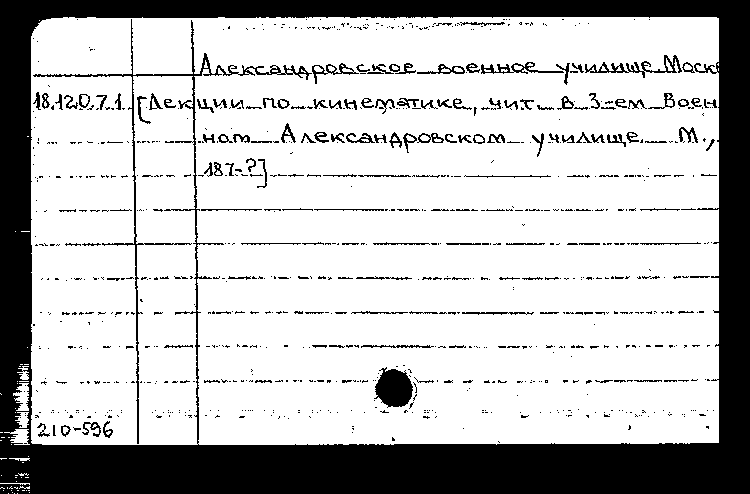 Александровское военное училище. Москв
18.120.7.1. [Лекции по кинематике, чит. в 3-ем Воен-
ном Александровском училище. М.,
187-?]
210-596